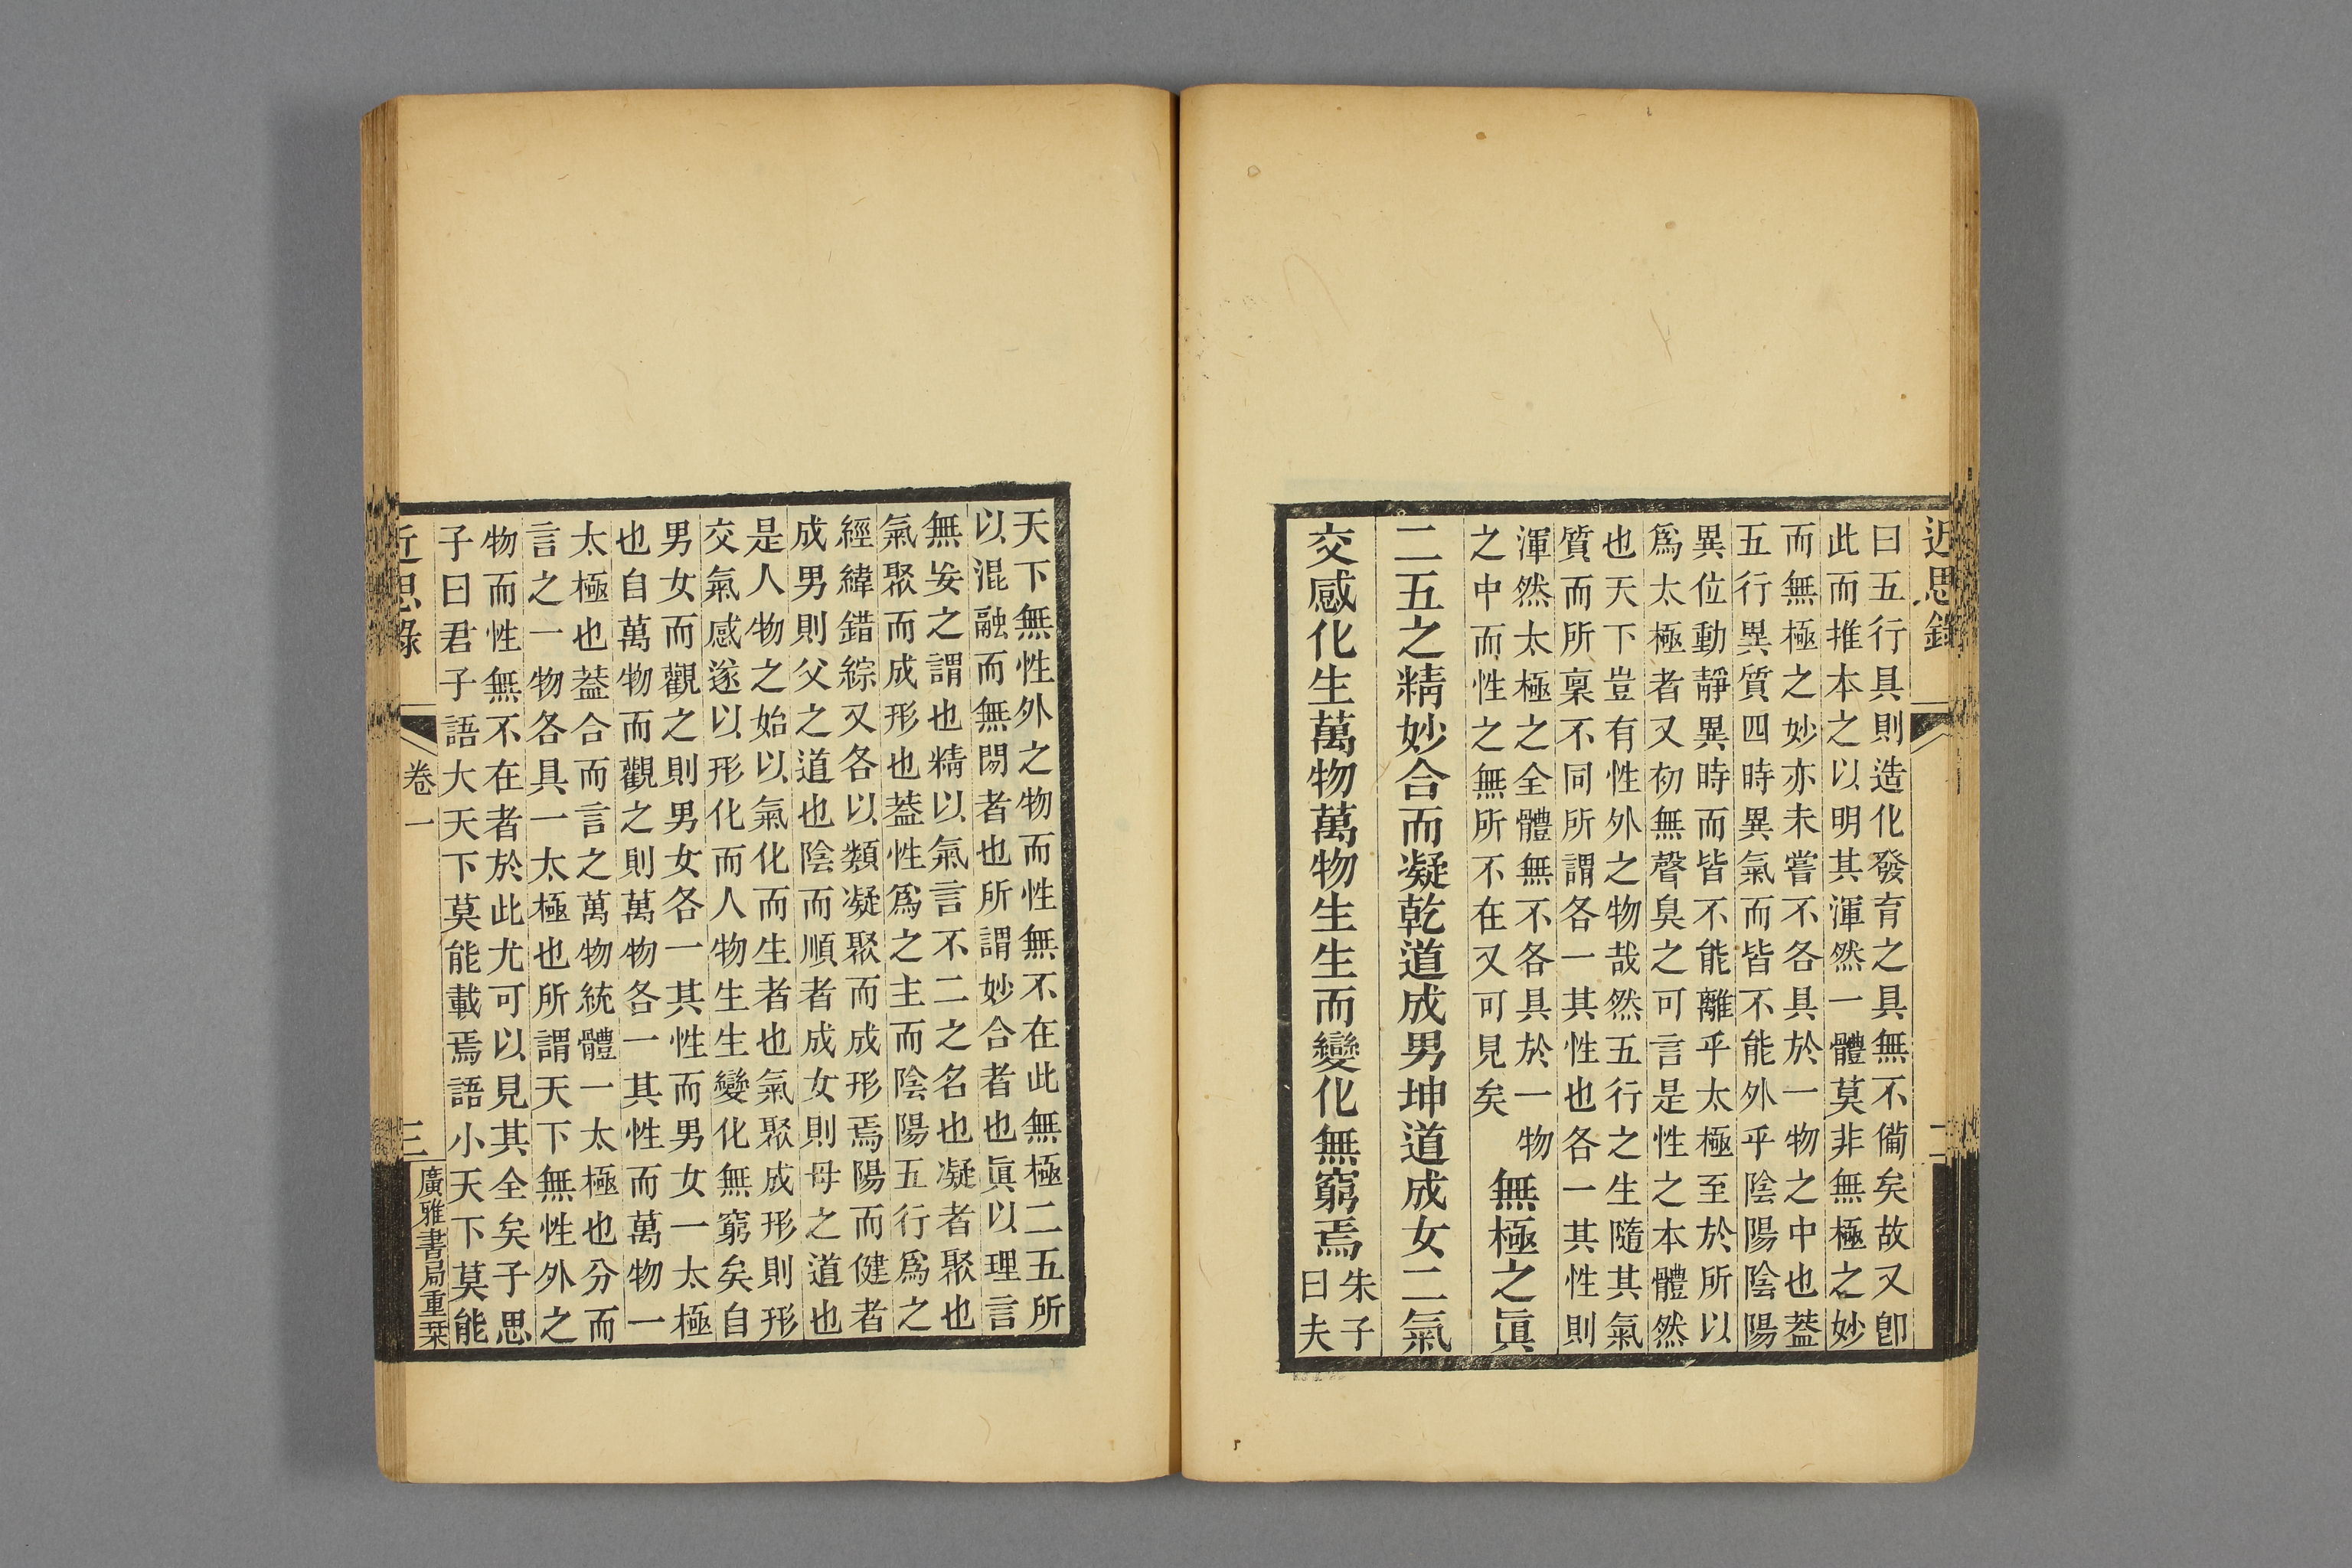 近思錄
二
曰五行具則造化發育之具無不備矣故又卽
此而推本之以明其渾然一體莫非無極之妙
而無極之妙亦未嘗不各具於一物之中也蓋
五行異質四時異氣而皆不能外乎陰陽陰陽
異位動靜異時而皆不能離乎太極至於所以
爲太極者又初無聲臭之可言是性之本體然
也天下豈有性外之物哉然五行之生隨其氣
質而所稟不同所謂各一其性也各一其性則
渾然太極之全體無不各具於一物
之中而性之無所不在又可見矣
無極之眞
二五之精妙合而凝乾道成男坤道成女二氣
交感化生萬物萬物生生而變化無窮焉
朱子
曰夫
天下無性外之物而性無不在此無極二五所
以混融而無閒者也所謂妙合者也眞以理言
無妄之謂也精以氣言不二之名也凝者聚也
氣聚而成形也蓋性爲之主而陰陽五行爲之
經緯錯綜又各以類凝聚而成形焉陽而健者
成男則父之道也陰而順者成女則母之道也
是人物之始以氣化而生者也氣聚成形則形
交氣感遂以形化而人物生生變化無窮矣自
男女而觀之則男女各一其性而男女一太極
也自萬物而觀之則萬物各一其性而萬物一
太極也蓋合而言之萬物統體一太極也分而
言之一物各具一太極也所謂天下無性外之
物而性無不在者於此尤可以見其全矣子思
子曰君子語大天下莫能載焉語小天下莫能
近思錄
卷一
三
廣雅書局重栞